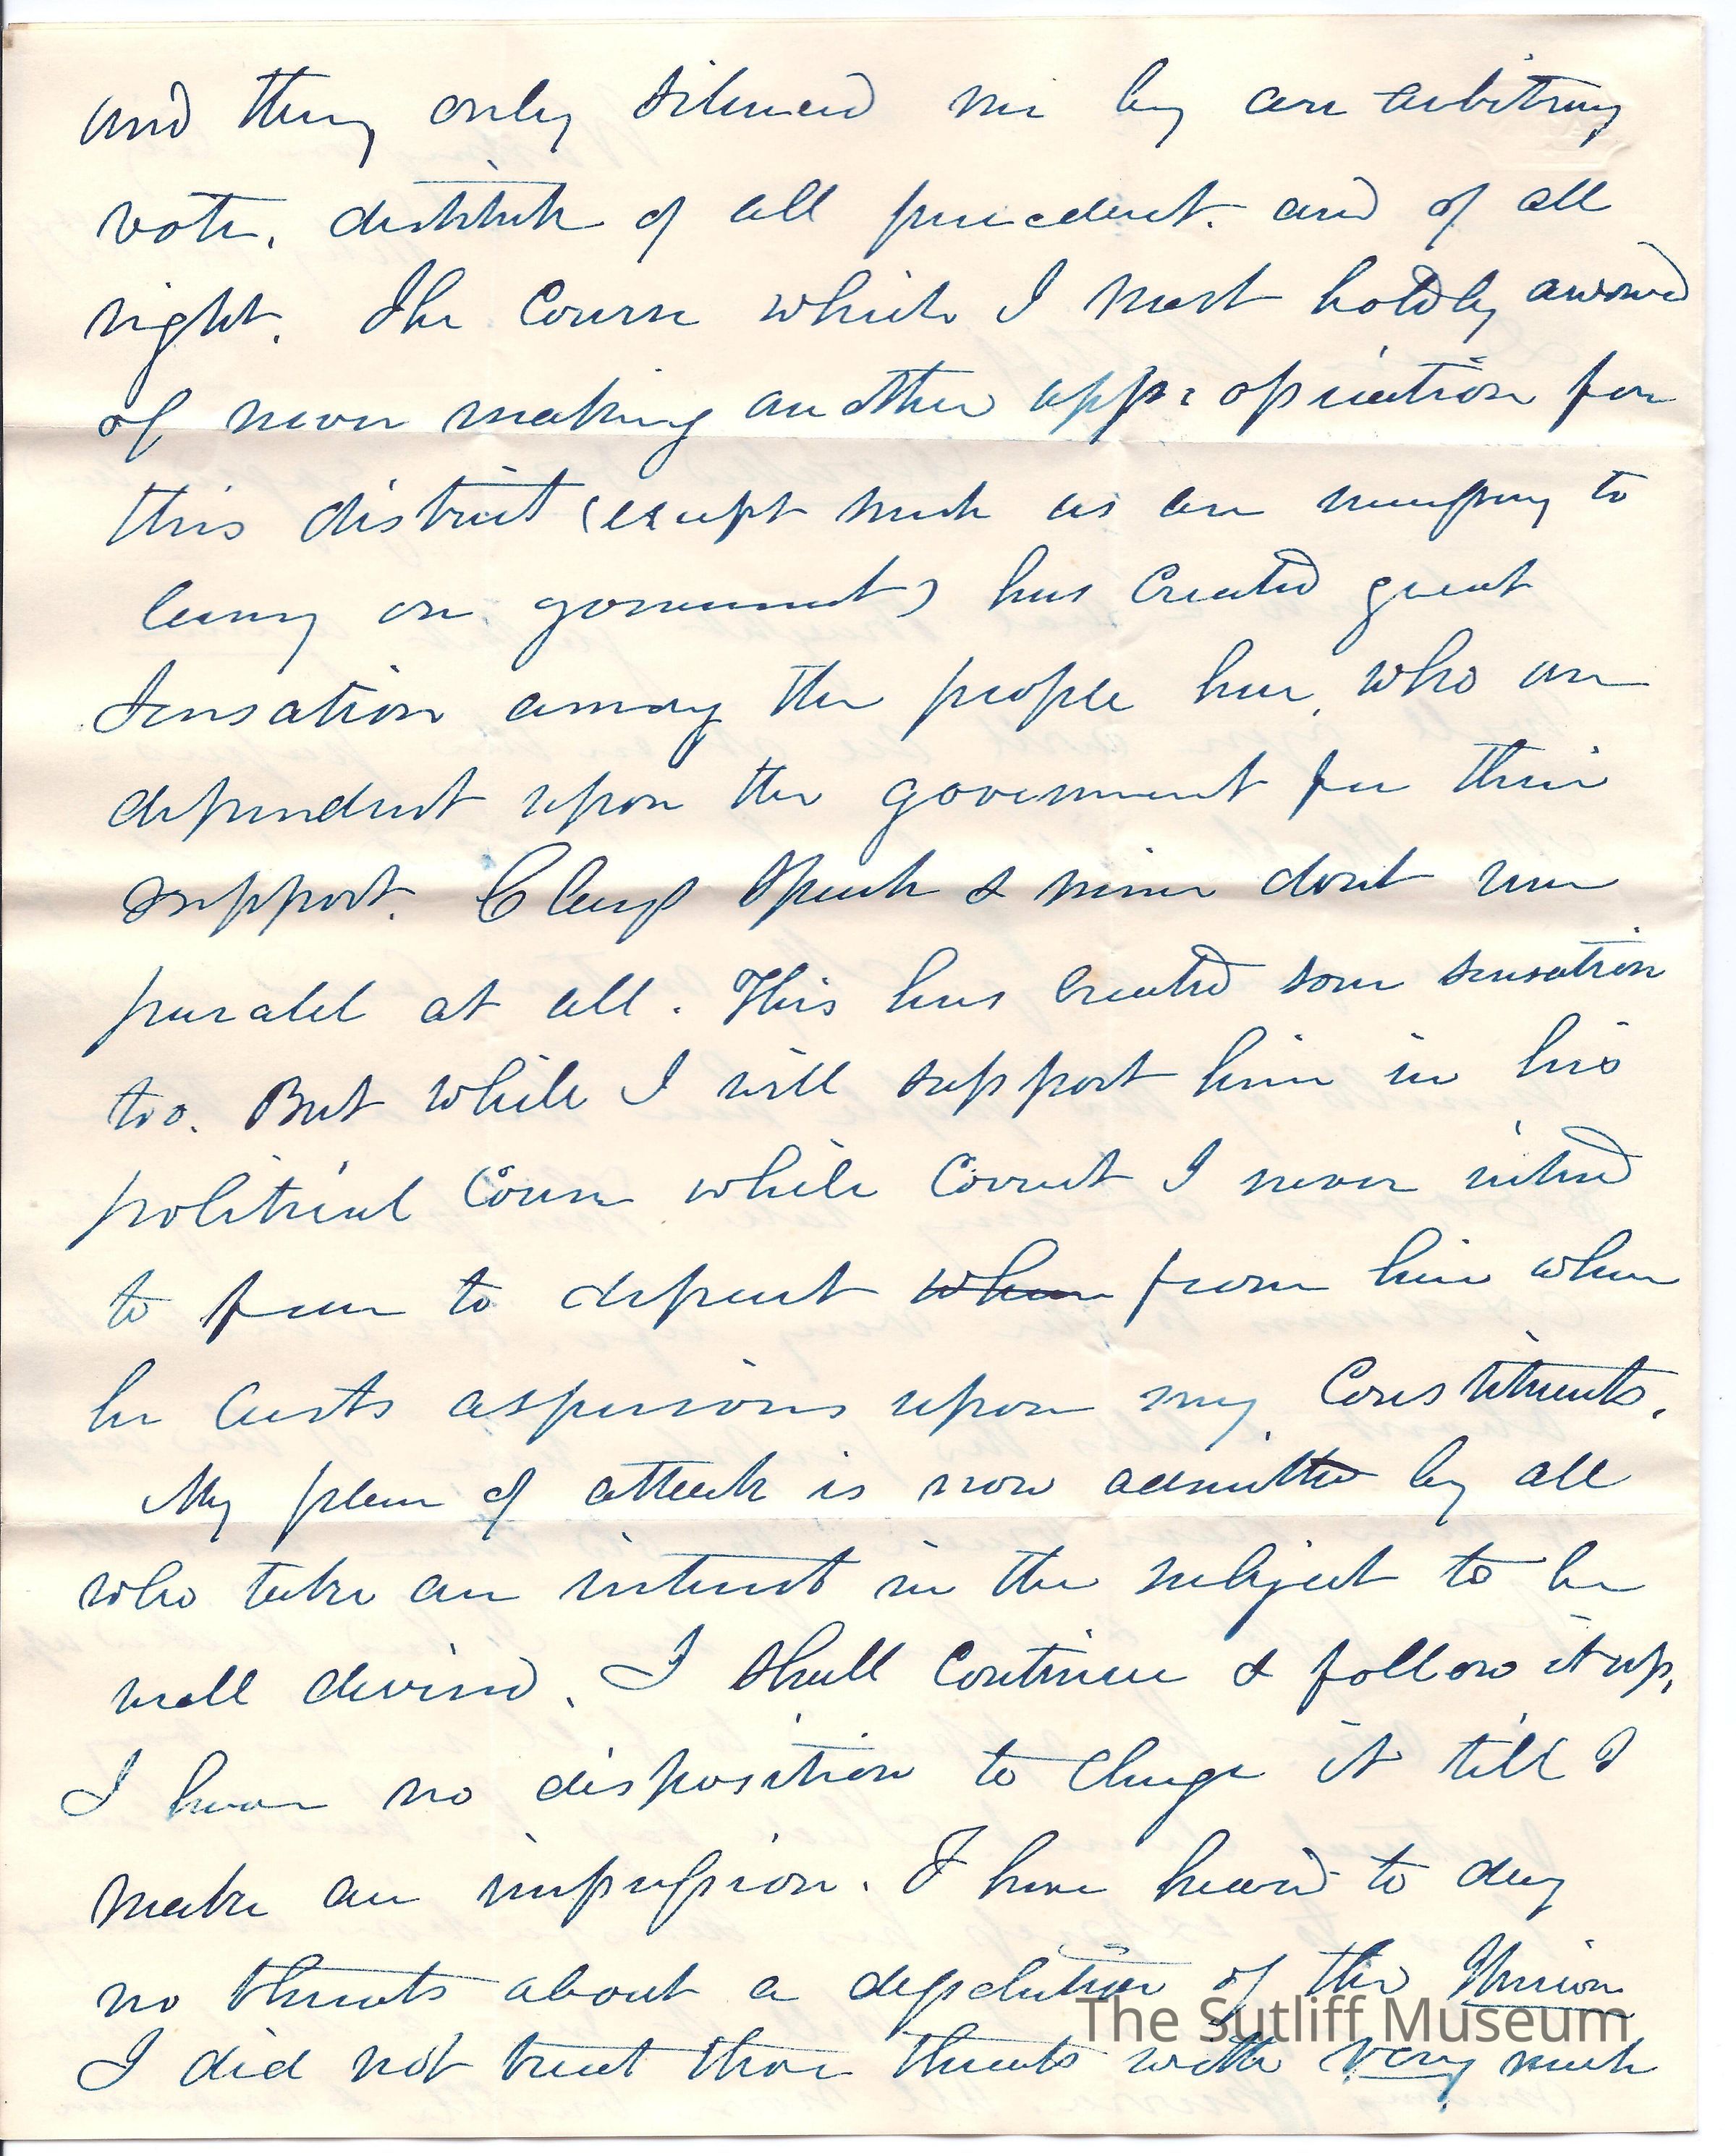 and they only silenced me by an arbitrary
vote, destitute of all precedent. and of all
right. The Course which I most boldly avowed
of never making another app: opriation for
this district (except such as are necessary to
carry on government) has Created great
Sensation among the people here, who are
dependent upon the government for their
support. Clays Speech & mine dont run
paralel at all. This has Created some sensation
too. But while I will support him in his
political Course while Correct I never intend
to fear to depart when from him when
he Casts aspersions upon my Constituents.
My plan of attack is now admitted by all
who take an interest in the subject to be
well devised. I shall Continue & follow it up,
I have no disposition to Change it till I
make an impression. I have heard to day
no threats about a dissolution of the Union
I did not treat those threats with very much
The Sutliff Museum